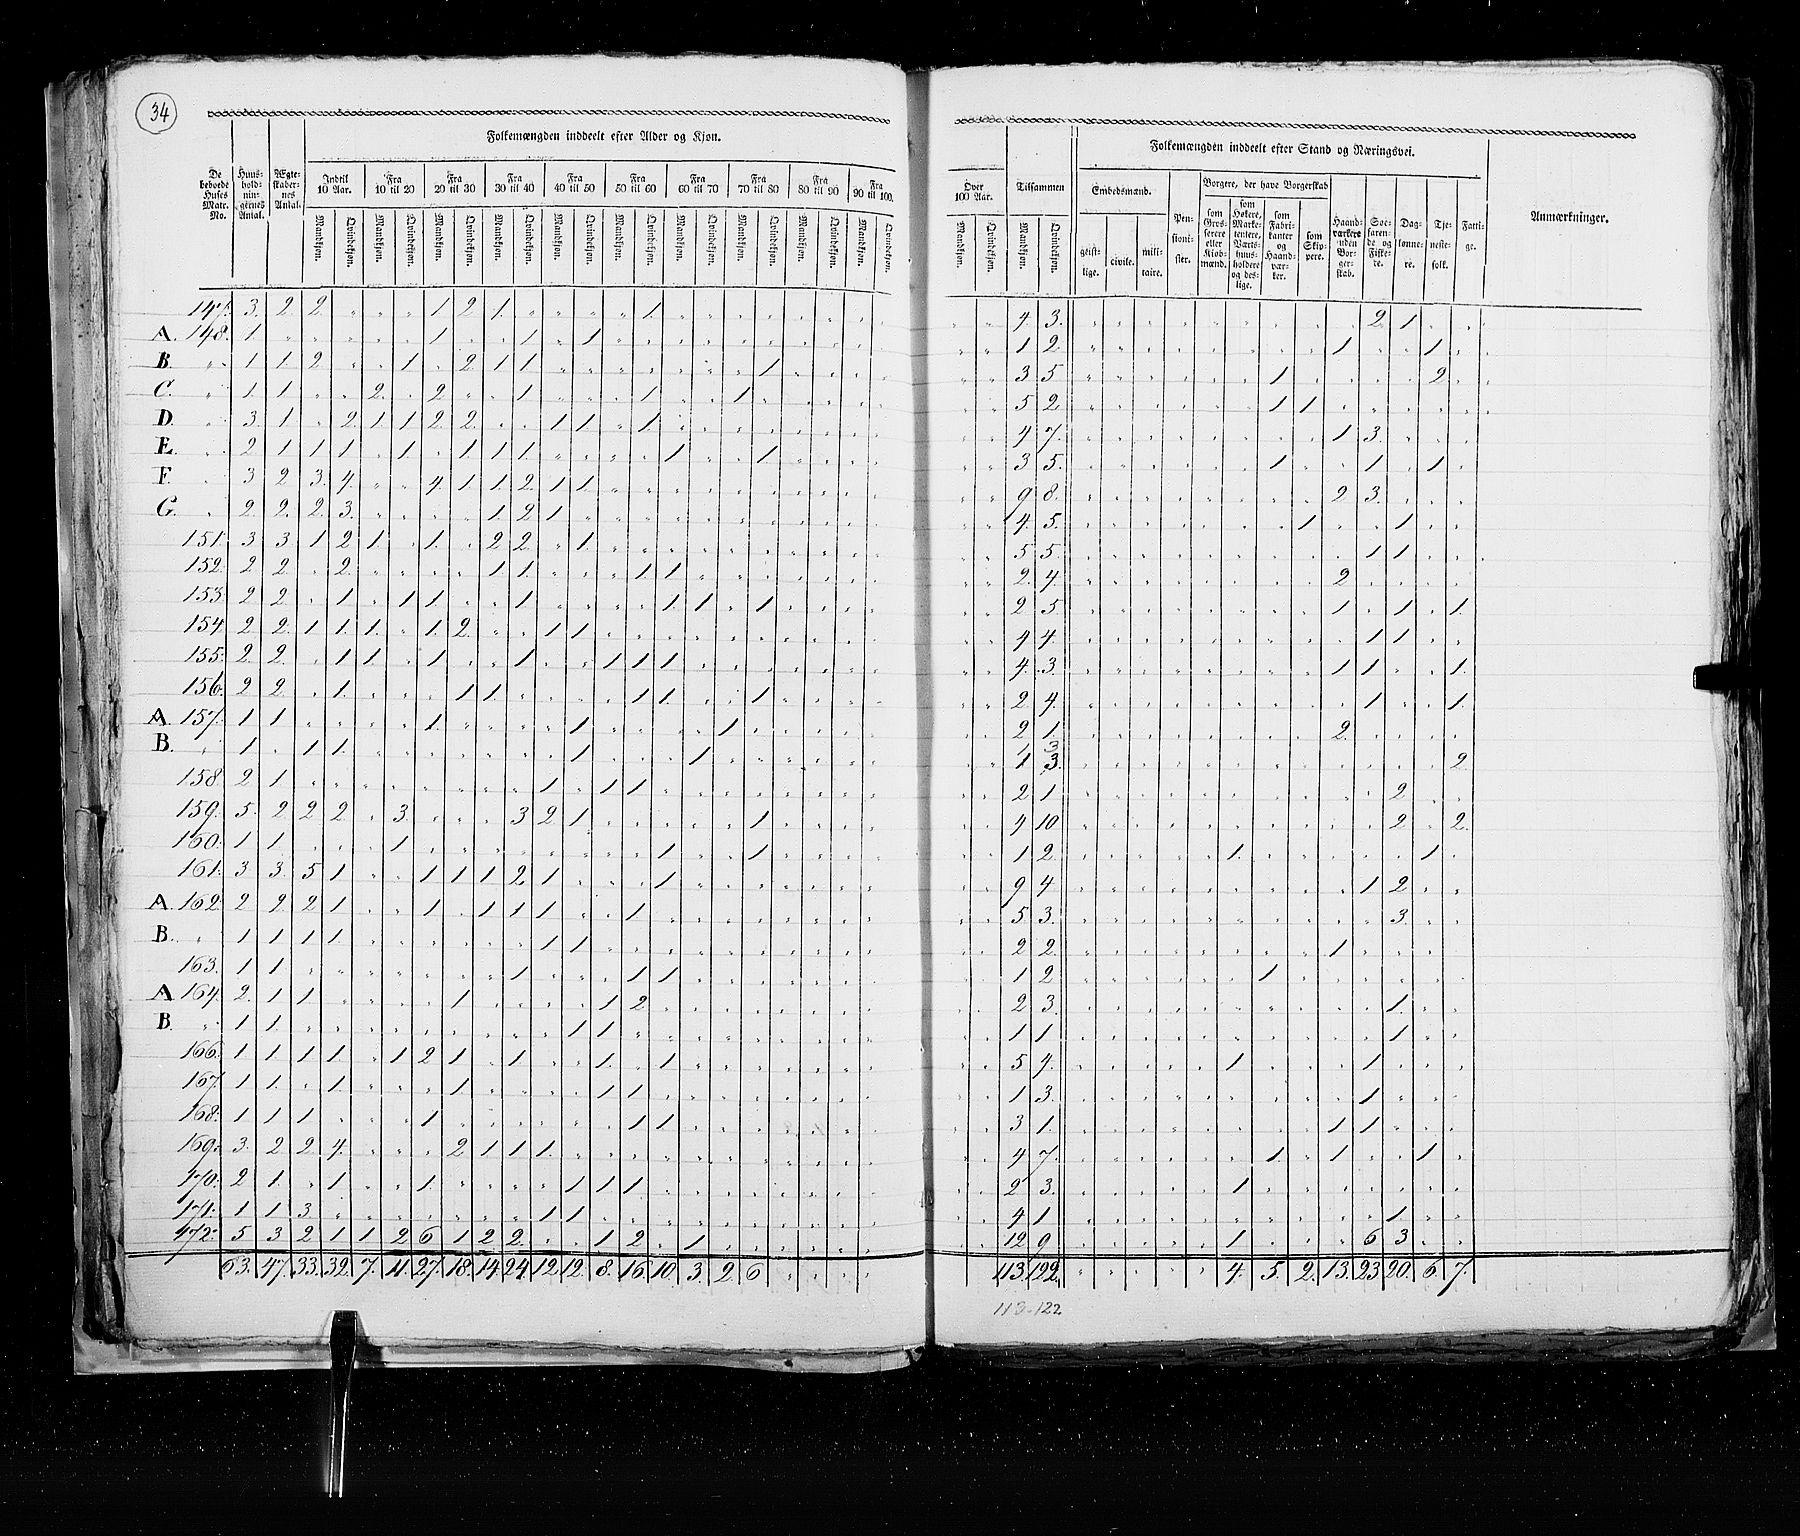 34
Folkemængden inddeelt efter Alder og Kjøn.
De beboede Huses Matr. No.
Huus-hold-nin-gernes Antal.
Ægte-skaber-nes Antal.
Indtil 10 Aar.
Fra 10 til 20
Fra 20 til 30
Fra 30 til 40
Fra 40 til 50
Fra 50 til 60
Fra 60 til 70
Fra 70 til 80
Fra 80 til 90
Fra 90 til 100.
Mandkjøn. Qvindekjøn. Mandkjøn. Qvindekjøn. Mandkjøn. Qvindekjøn. Mandkjøn. Qvindekjøn. Mandkjøn. Qvindekjøn. Mandkjøn. Qvindekjøn. Mandkjøn. Qvindekjøn. Mandkjøn. Qvindekjøn. Mandkjøn. Qvindekjøn. Mandkjøn. Qvindekjøn.
Over 100 Aar.
Tilsammen
Mandkjøn. Qvindekjøn. Mandkjøn. Qvindekjøn.
Folkemængden inddeelt efter Stand og Næringsvei.
Embedsmænd.
geist-lige. civile. mili-taire.
Pen-sioni-ster.
Borgere, der have Borgerskab
som Gros-serere eller Kiøb-mænd.
som Høkere, Marke-tentere, Værts-huus-holdere og des-lige.
som Fabri-kanter og Haand-vær-ker.
som Skip-pere.
Haand-værkere uden Bor-ger-skab.
Søe-faren-de og Fiske-re.
Dag-lønne-re.
Tje-neste-folk.
Fatti-ge.
Anmærkninger.
147. 3. 2 2. 1 2 1. 1. 4. 3. 2 1.
A. 148. 1. 1. 1. 1. 1 2. 1 1.
B. 1 1. 2 1. 2. 1 1 1. 3 5. 1. 2.
C. 1. 1. 2. 2. 1. 1. 1. 5 2. 1 1.
D. 3 1. 2. 1. 1 2 2. 1 1. 1. 4 7. 1 3.
E. 2 1 1 1. 1. 1 1 1. 1. 1. 3 5. 1. 1. 1.
F. 3 2 3. 4. 4. 1 1. 2 1 1. 9 8. 2 3.
G. 2. 2. 2. 3. 1. 2 1 4. 5. 1. 1.
151. 3 3. 1 2 1. 1. 2 2. 1. 5 5. 1 1.
152. 2 2. 2. 1. 1. 1. 1 2. 4. 2.
153. 2 2. 1. 1 1. 1. 1. 1. 1. 2 5. 1. 1. 1.
154. 2 2. 1 1. 1. 1. 2. 1 1. 4 4. 1 1.
155. 2 2. 1 1. 1. 1. 1 1 1. 4. 3. 1 1. 1.
156. 2 2. 1. 1 1. 1 1. 1. 2 4. 1. 1.
A. 157. 1 1. 1. 1. 1. 2 1. 2.
B. 1. 1 1. 1. 1. 1 3. 2.
3
158. 2 1. 1. 1 1. 2 1 2.
159. 5. 2 2 2. 3. 3 2. 1. 1. 4 10 2. 2.
160. 1 1. 1. 1. 1. 1 2. 1. 1.
161. 3 3. 5 1. 1 1 1 2 1. 1. 9 4 1 2.
A. 162. 2 2 2 1. 1. 1 1 1. 1. 5 3. 3.
B. 1 1. 1 1. 1 1. 2 2. 1.
163. 1 1. 1. 1 1. 1 2. 1.
A. 164. 2. 1 1. 1. 1 2. 2 3. 1.
B. 1 1. 1 1. 1 1. 1.
166. 1 1. 1 1. 1 2 1. 1. 1. 1. 5 4. 1. 1.
167. 1 1. 1. 1. 1 1. 1 3. 1.
168. 1 1 1. 1. 1 1. 3 1. 1 1.
169. 3. 2 2 4. 2 1 1 1. 4 7. 1. 1. 1.
170. 2 1. 1. 1. 1 1 1. 2 3. 1.
171. 1 1 3. 1 1. 4 1 1.
472. 5 3 2 1 1 2 6 1 2 2. 1 2. 1. 12 9. 1. 6 3.
63. 47. 33. 32. 7. 11. 27. 18. 14. 24. 12. 12. 8. 16. 10. 3. 2. 6 113. 122. 4. 5. 2. 13. 23 20. 6. 7.
113-122